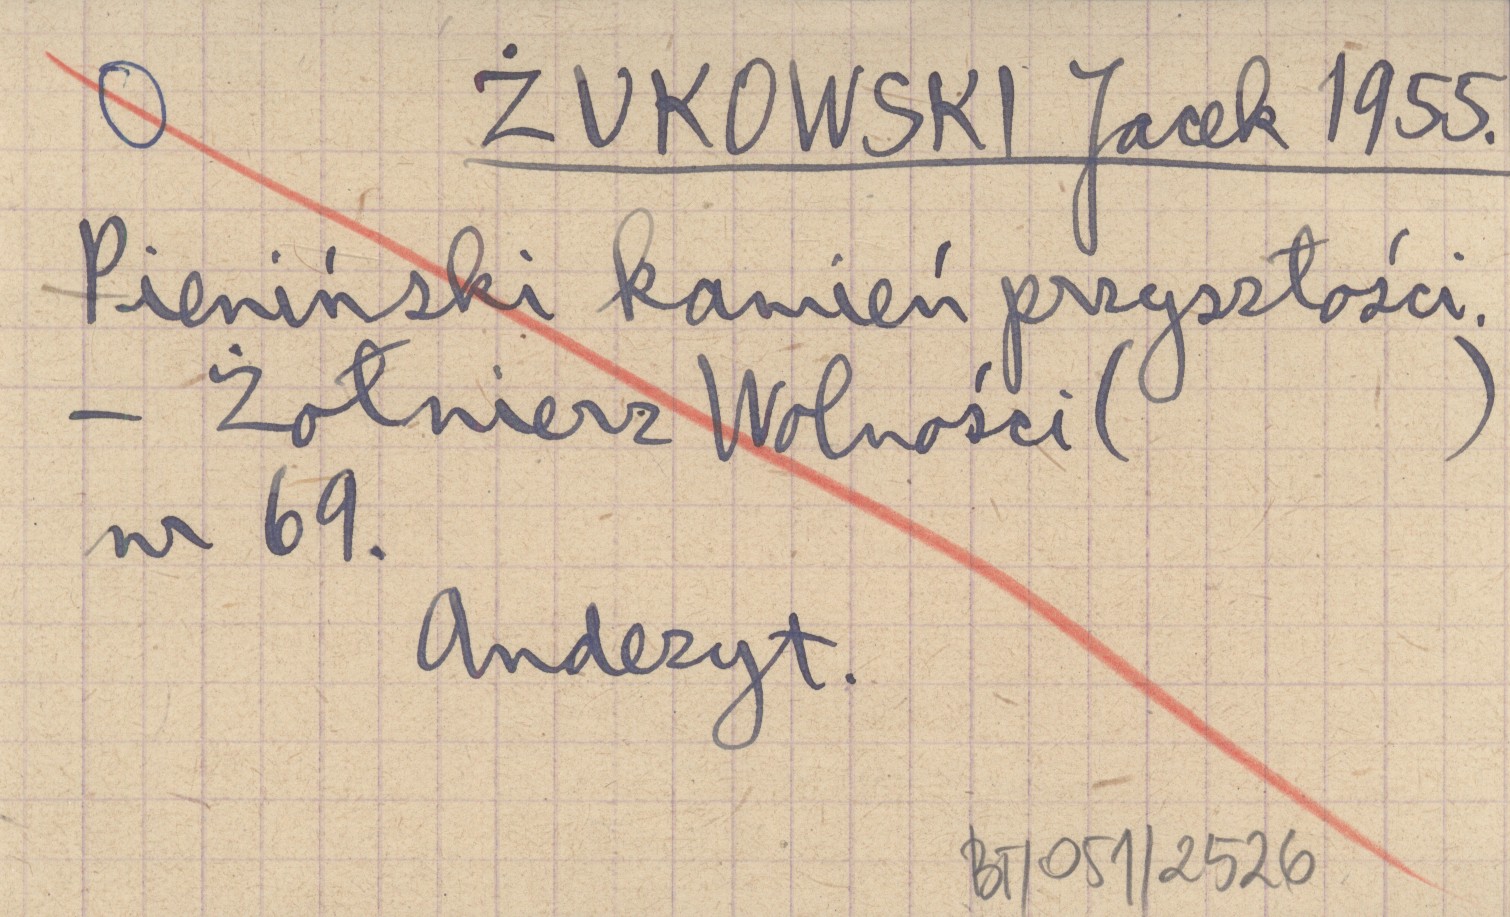 O ŻUKOWSKI Jacek 1955.
Pieniński kamień przyszłości.
– Żołnierz Wolności ( )
nr 69.
Andezyt.
BT/051/2526